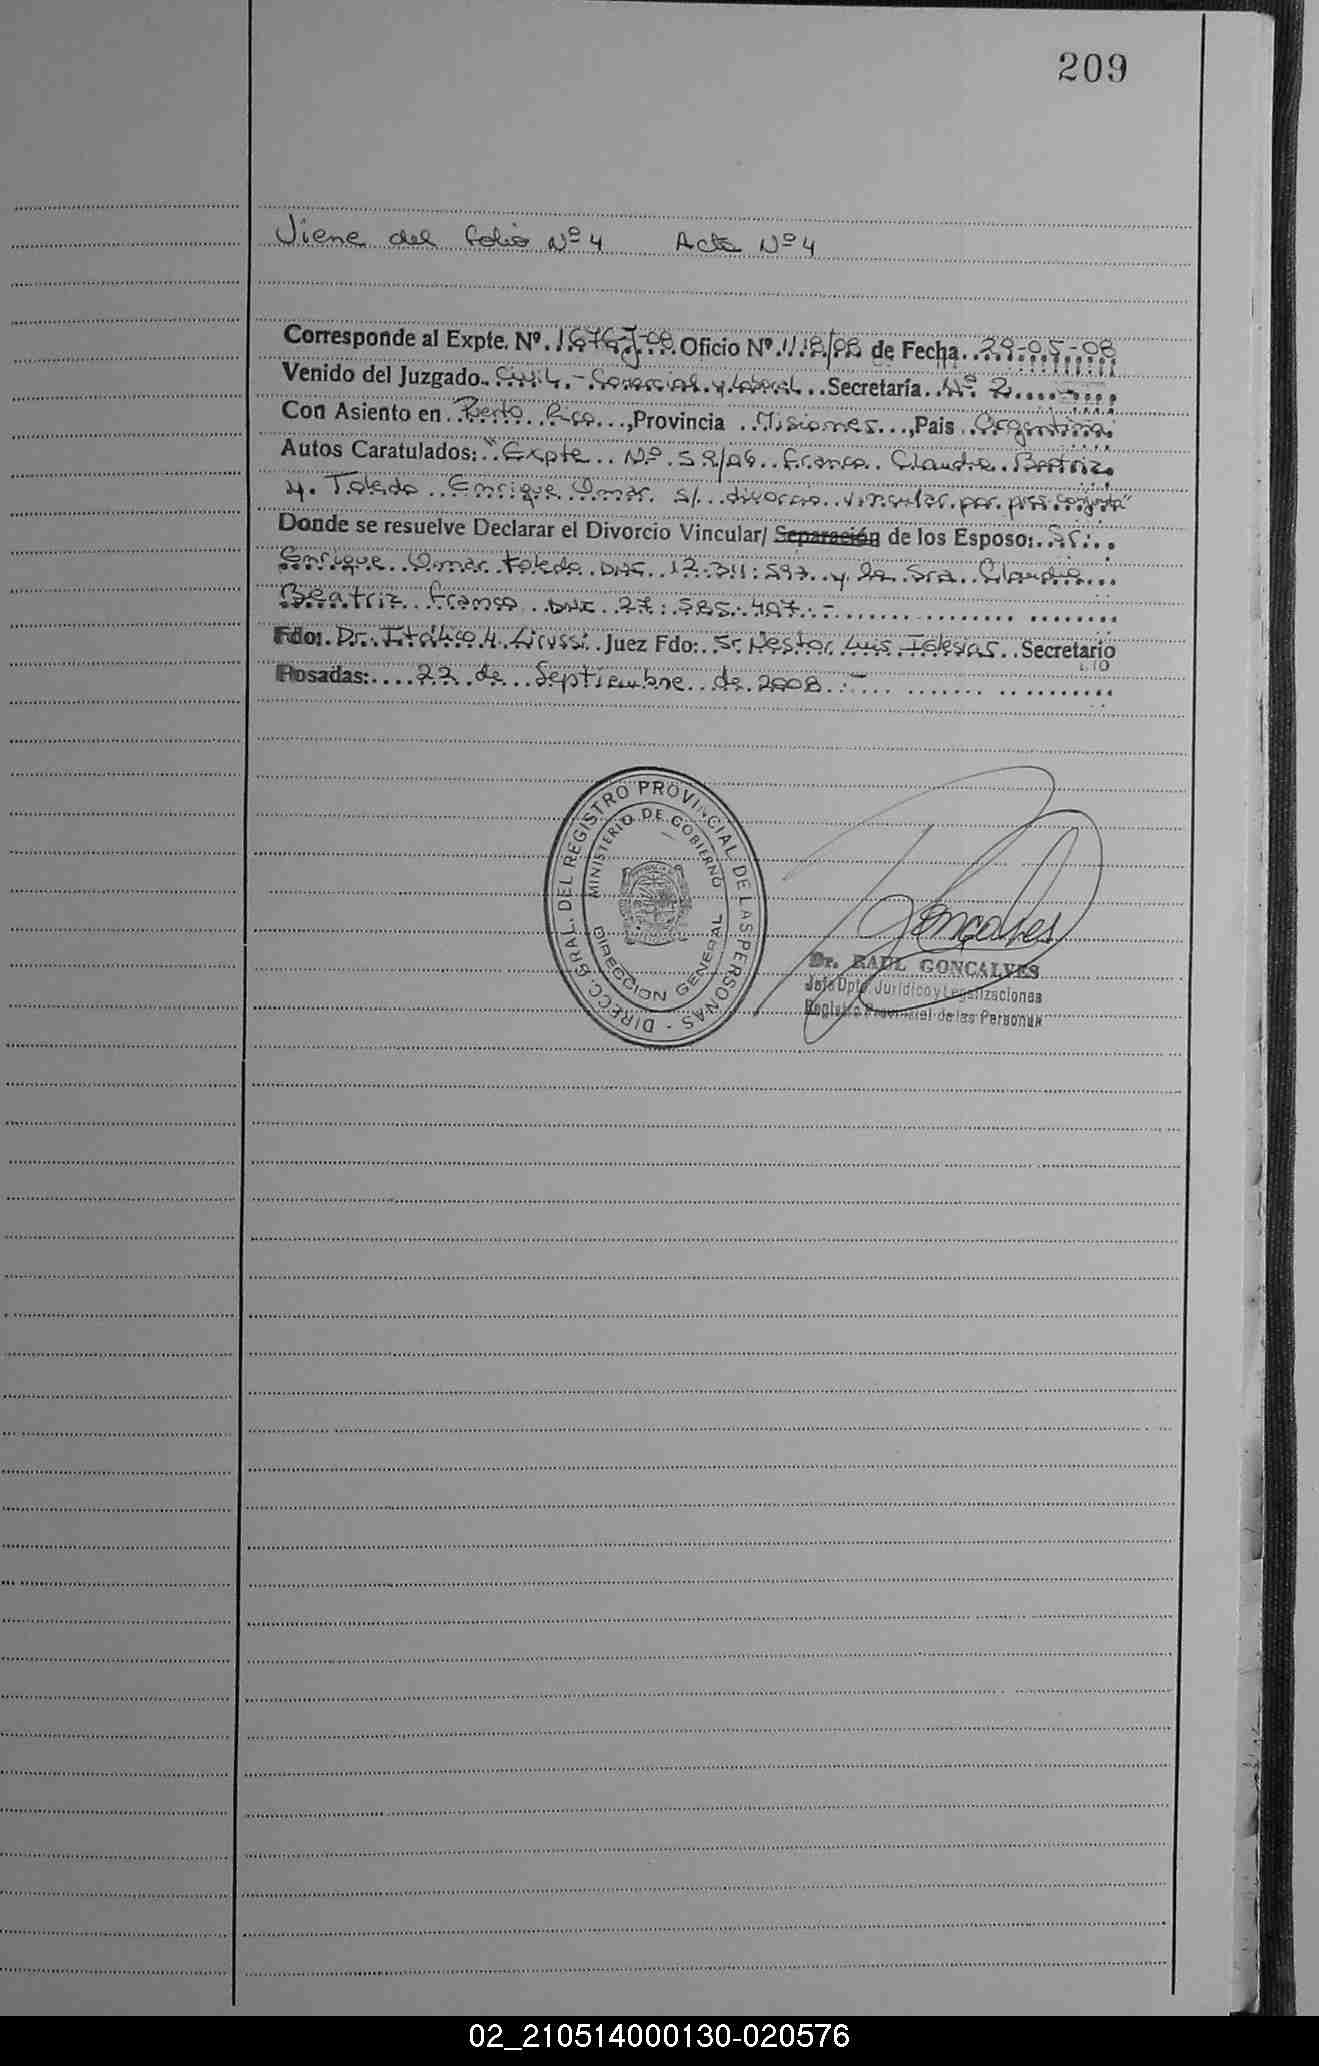 209
Viene del folio Nº 4 Acta Nº 4
Corresponde al Expte. Nº. 1676-J-08. Oficio Nº. 1118/08 de Fecha. 29-05-08
Venido del Juzgado. Civil - Comercial y Laboral. Secretaría. Nº 2
Con Asiento en Puerto Rico, Provincia Misiones, Pais Argentina
Autos Caratulados: "Expte. Nº 59/06 Franco Claudia Beatriz
y Toledo Enrique Omar s/ divorcio vincular por pres. conjunta"
Donde se resuelve Declarar el Divorcio Vincular/ Separación de los Esposo: Sr.
Enrique Omar Toledo DNI 12.311.597 y la Sra. Claudia
Beatriz Franco DNI 27.585.407. -
Fdo: Dr. Itálico H. Juez Fdo: Sr. Nestor Luis Iglesias. Secretario
Posadas: 22 de Septiembre de 2008. -
DIRECC. GRAL. DEL REGISTRO PROVINCIAL DE LAS PERSONAS -
MINISTERIO DE GOBIERNO
DIRECCION GENERAL
Gonçalves
Dr. RAUL GONCALVES
Jefe Dpto. Jurídico y Legalizaciones
Registro Provincial de las Personas
02_210514000130-020576